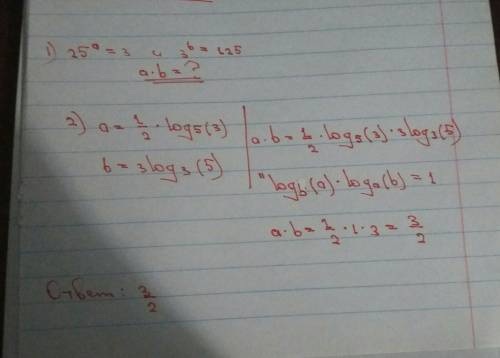 1) 25ᵃ = 3 и 3ᵇ = 125
a·b = ?
2) a = 1/2 · log₅(3)
b = 3log₃(5)
a·b = 1/2 · log₅(3) · 3log₃(5)
"log_b(a) · log_a(b) = 1
a·b = 1/2 · 1 · 3 = 3/2
Ответ: 3/2